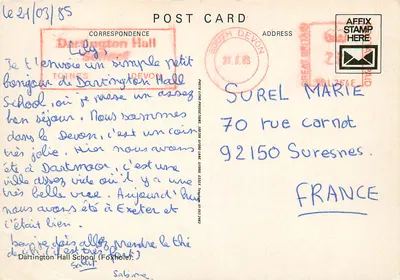 POST CARD
CORRESPONDENCE
ADDRESS
AFFIX
STAMP
HERE
le 21/03/85
Dartington Hall
School
TOTNES DEVON
SOUTH DEVON
GREAT BRITAIN
Lily,
Je t'envoie un simple petit
bonjour de Dartington Hall
School, où je passe un assez
bon séjour. Nous sommes
dans le Devon, c'est un coin
très jolie. Hier nous avons
été à Dartmoor, c'est une
ville assez vide où il y a une
très belle vue. Aujourd'hui
nous avons été à Exeter et
c'était bien.
je dois allez prendre le thé
(il s'est très fort)
Sabine
SUREL MARIE
70 rue carnot
92150 Suresnes.
FRANCE
Dartington Hall School (Foxhole).